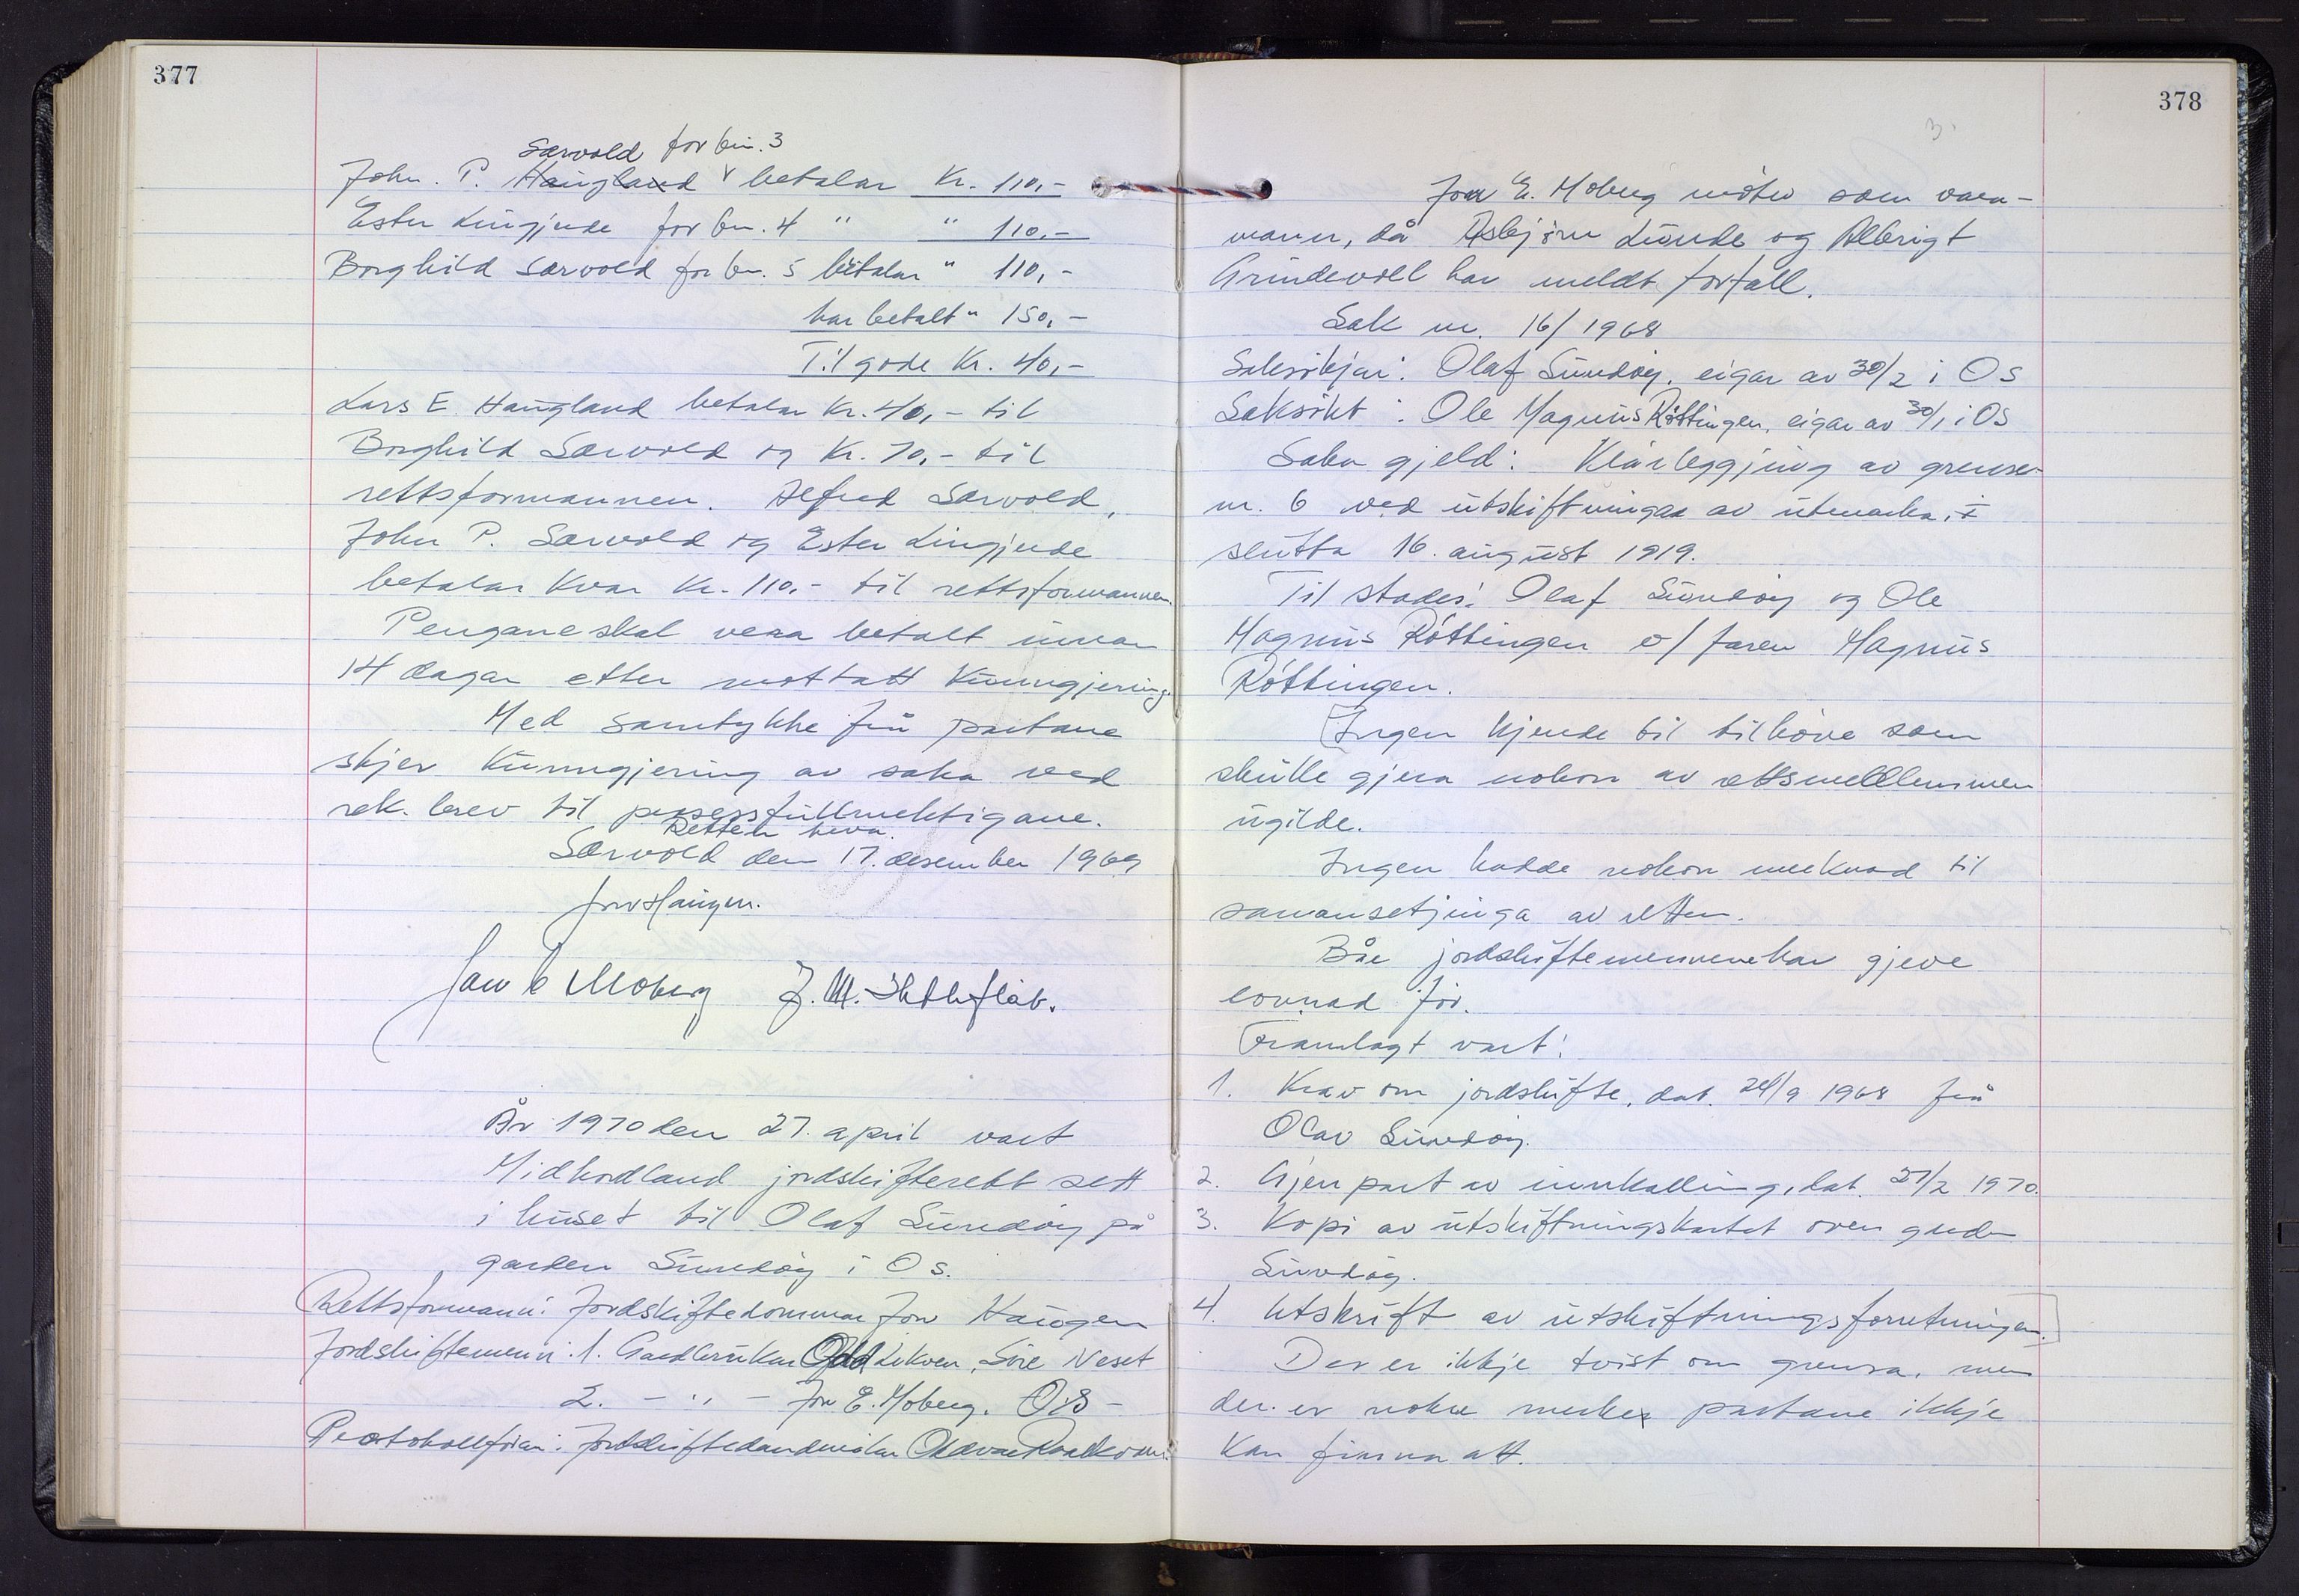 377
Sørvold for bn. 3
John. P. Haugland betalar Kr. 110,-
Ester Lingjerde for bn. 4 " " 110,-
Borghild Sørvold for bn. 5 betalar " 110,-
har betalt " 150,-
Til gode Kr. 40,-
Lars E. Haugland betalar Kr. 40,- til
Borghild Sørvold og Kr. 70,- til
rettsformannen. Alfred Sørvold,
John P. Sørvold og Ester Lingjerde
betalar kvar Kr. 110.- til rettsformannen.
Pengane skal vera betalt innan
14 dagar etter mottatt kunngjering.
Med samtykke frå partane
skjer kunngjering av saka ved
rek. brev til prosessfullmektigane.
Retten heva.
Sørvold den 17. desember 1969
Jon Haugen.
Jon E Moberg J. M.
År 1970 den 27. april vart
Midhordland jordskifterett sett
i huset til Olaf Sundøy på
garden Sundøy i Os.
Rettsformann: Jordskiftedommar Jon Haugen
Jordskiftemenn: 1. Gardbrukar Odd Lekven, Søre Neset
2. - " - Jon E. Moberg. Os -
Protokollførar: Jordskiftekandidat
378
3.
Jon E. Moberg møter som vara-
mann, då Asbjørn Lunde og Albrigt
Grindevoll har meldt forfall.
Sak nr. 16/1968
Saksøkjar: Olaf Sundøy, eigar av 30/2 i Os
Saksøkt: Ole Magnus Røttingen, eigar av 30/1 i Os
Saka gjeld: Klårleggjing av grense-
nr. 6 ved utskiftninga av utmarka,
slutta 16. august 1919.
Til stades: Olaf Sundøy og Ole
Magnus Røttingen v/ faren Magnus
Røttingen.
Ingen kjende til tilhøve som
skulle gjera nokon av rettsmedlemmen
ugilde.
Ingen hadde nokon merknad til
samansetjinga av retten.
Båe jordskiftemennene har gjeve
lovnad før.
Framlagt vart:
1. Krav om jordskifte, dat. 24/9 1968 frå
Olav Sundøy.
2. Gjenpart av innkalling, dat. 27/2 1970.
3. Kopi av utskiftningskartet over
Sundøy.
4. Utskrift av utskiftningsforretningen.
Der er ikkje tvist om grensa, men
der er nokre merke partane ikkje
kan finna att.